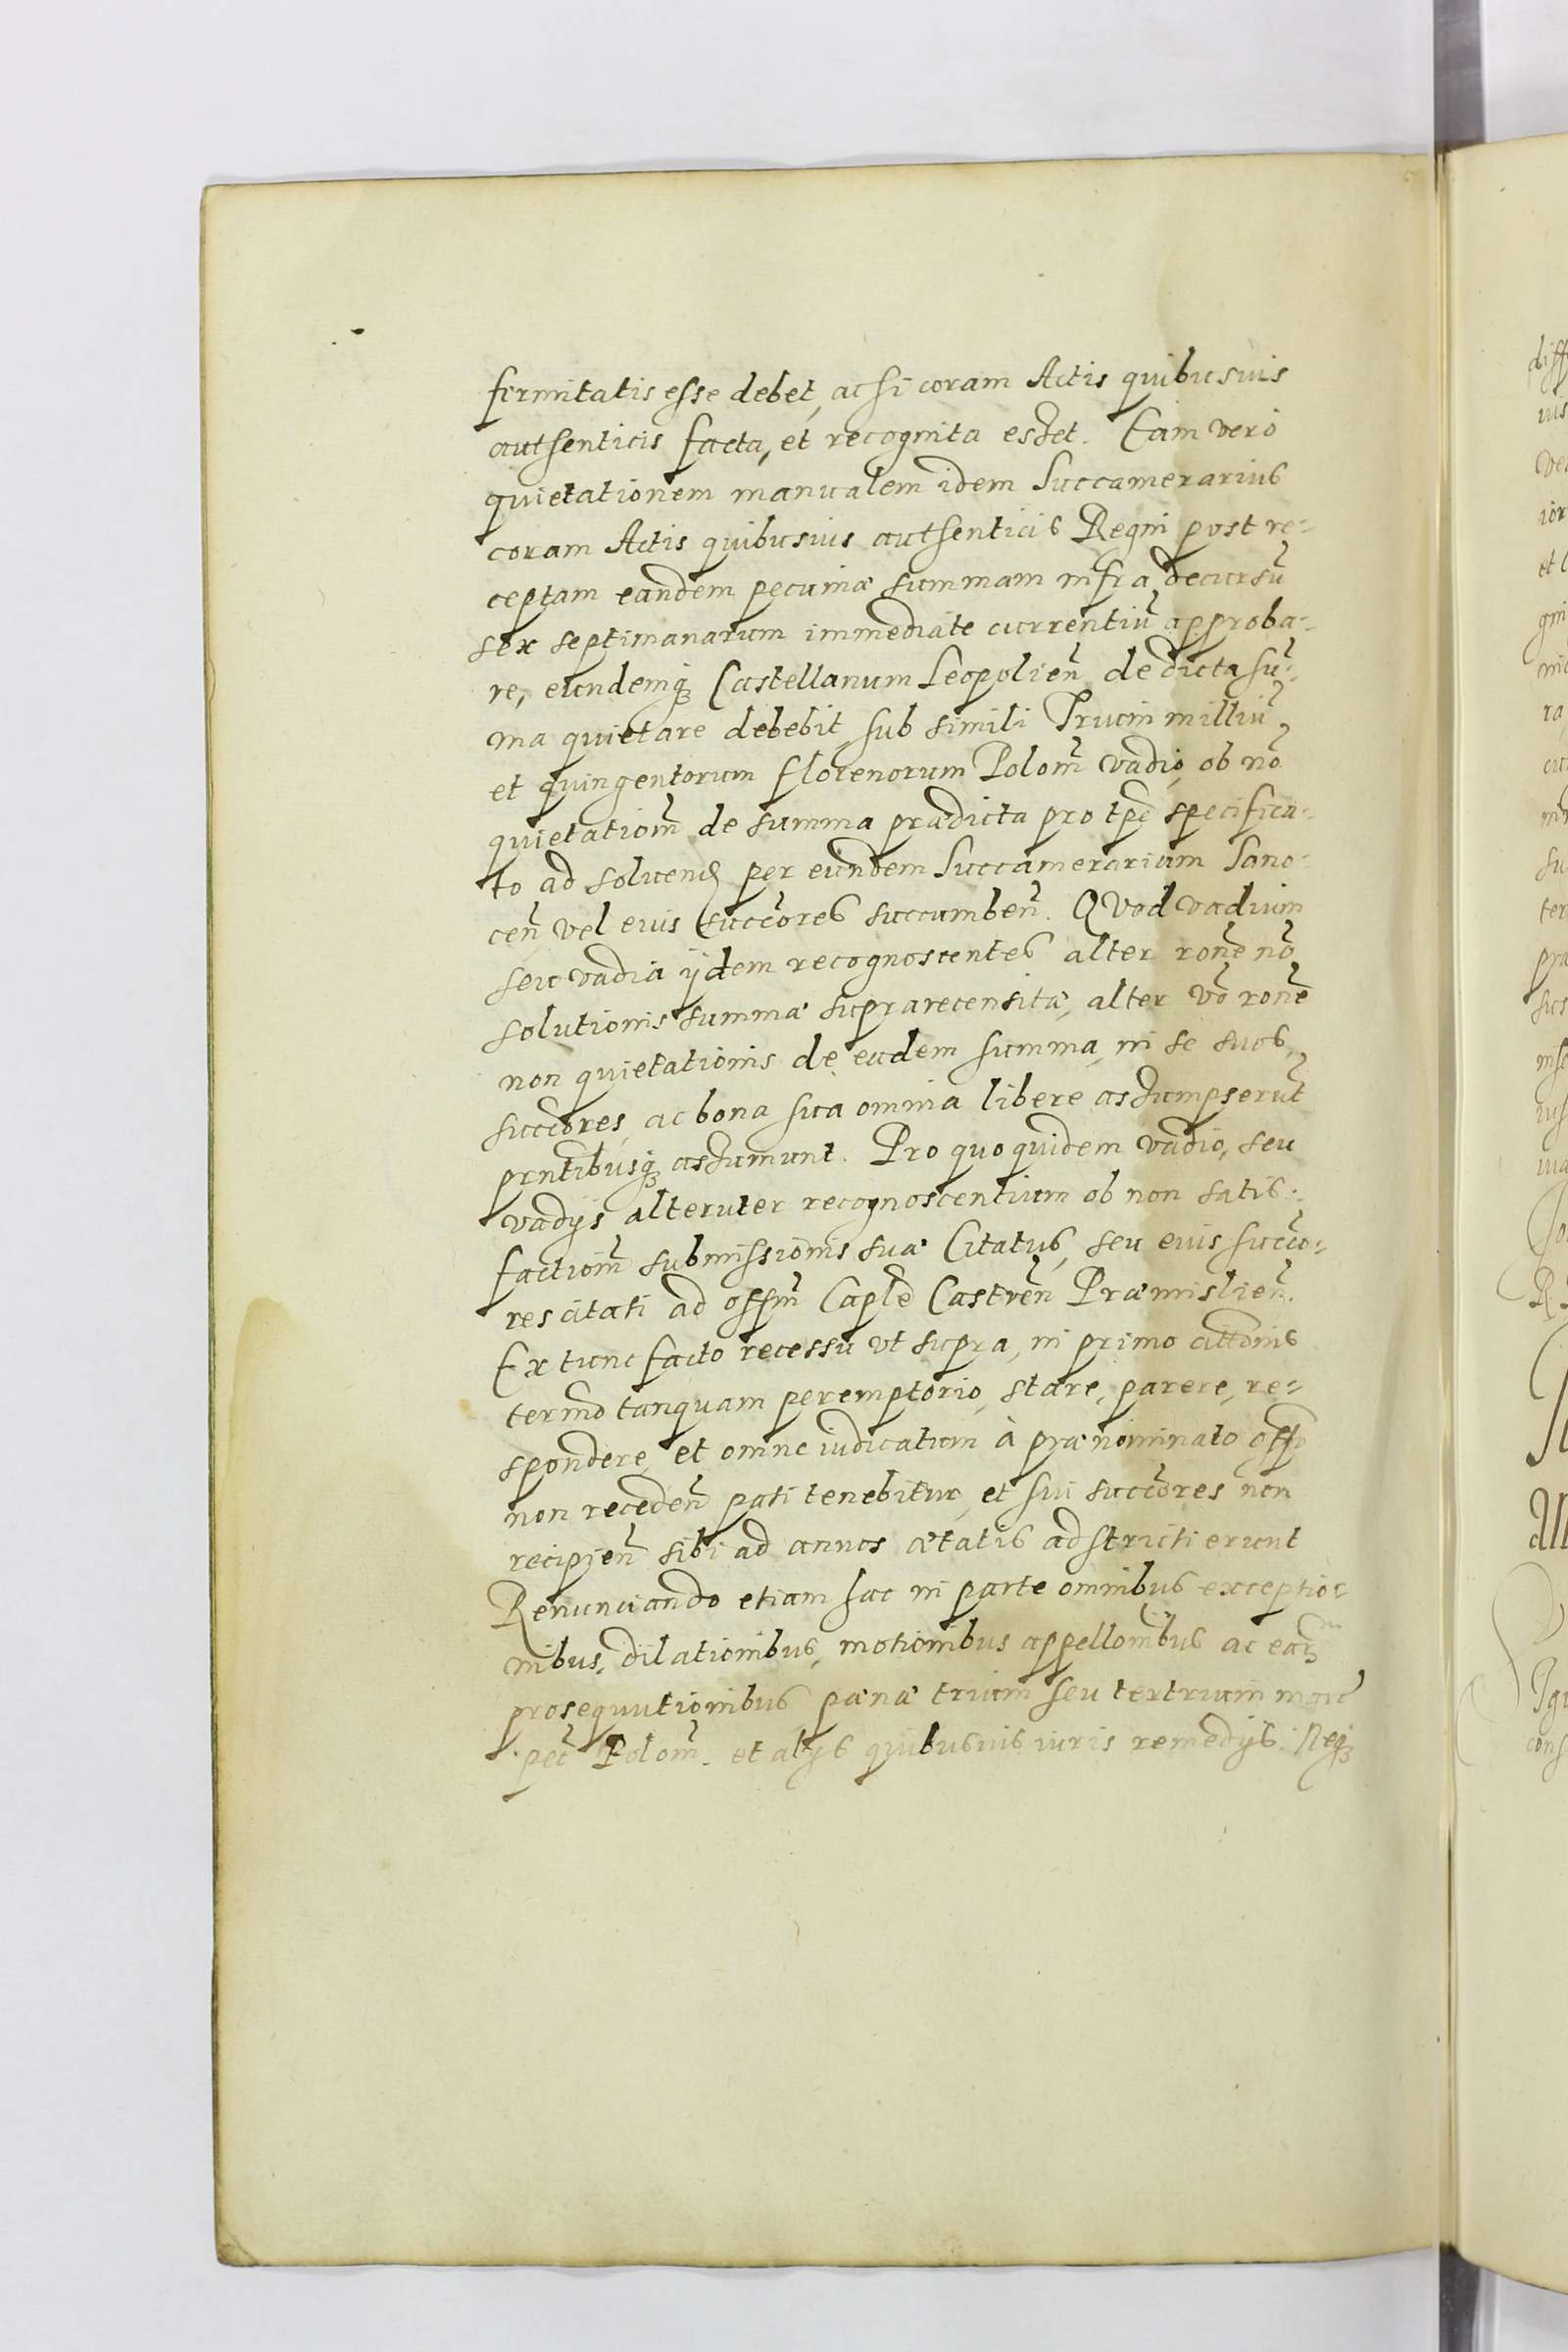 firmitatis esse debet, ac si coram Actis quibusuis
authenticis facta, et recognita esset. Eam vero
quietationem manualem idem Succamerarius
coram Actis quibusuis authenticis Regni post re-
ceptam eandem pecuniæ summam infra decursũ
sex septimanarum immediate currentiũ approba-
re, eundemq̃ Castellanum Leopolieñ de dicta sũ-
ma quietare debebit, sub simili Trium milliũ
et quingentorum florenorum Poloñ vadio, ob nõ
quietationẽ de summa prædicta pro tp̃e specifica-
to ad solvend per eundem Succamerarium Sano-
ceñ vel eius succõres succumbeñ. Quod vadium
seu vadia ijdem recognoscentes alter roñe nõ
solutionis summæ suprarecensitæ, alter vo͂ roñe
non quietationis de eadem summa, in se suos
succõres, ac bona sua omnia libere assumpserũt
prñtibusq̃ assumunt. Pro quo quidem vadio, seu
vadijs alteruter recognoscentium ob non satis-
factionẽ submissionis suæ Citatus, seu eius succõ-
res citati ad offm̃ Capl̃e Castreñ Præmislieñ.
Ex tunc facto recessu vt supra, in primo cittõnis
termõ tanquam peremptorio, stare, parere, re-
spondere, et omne iudicatum à prænominato offõ
non recedeñ pati tenebitur, et sui succõres non
recipieñ sibi ad annos ætatis adstricti erunt
Renunciando etiam hac in parte omnibus exceptio-
nibus, dilationibus, motionibus appellõnibus ac earũ
prosequutionibus pœnæ trium seu ter trium marc̃
pec̃ Poloñ. et alijs quibusuis iuris remedijs. Neq̃